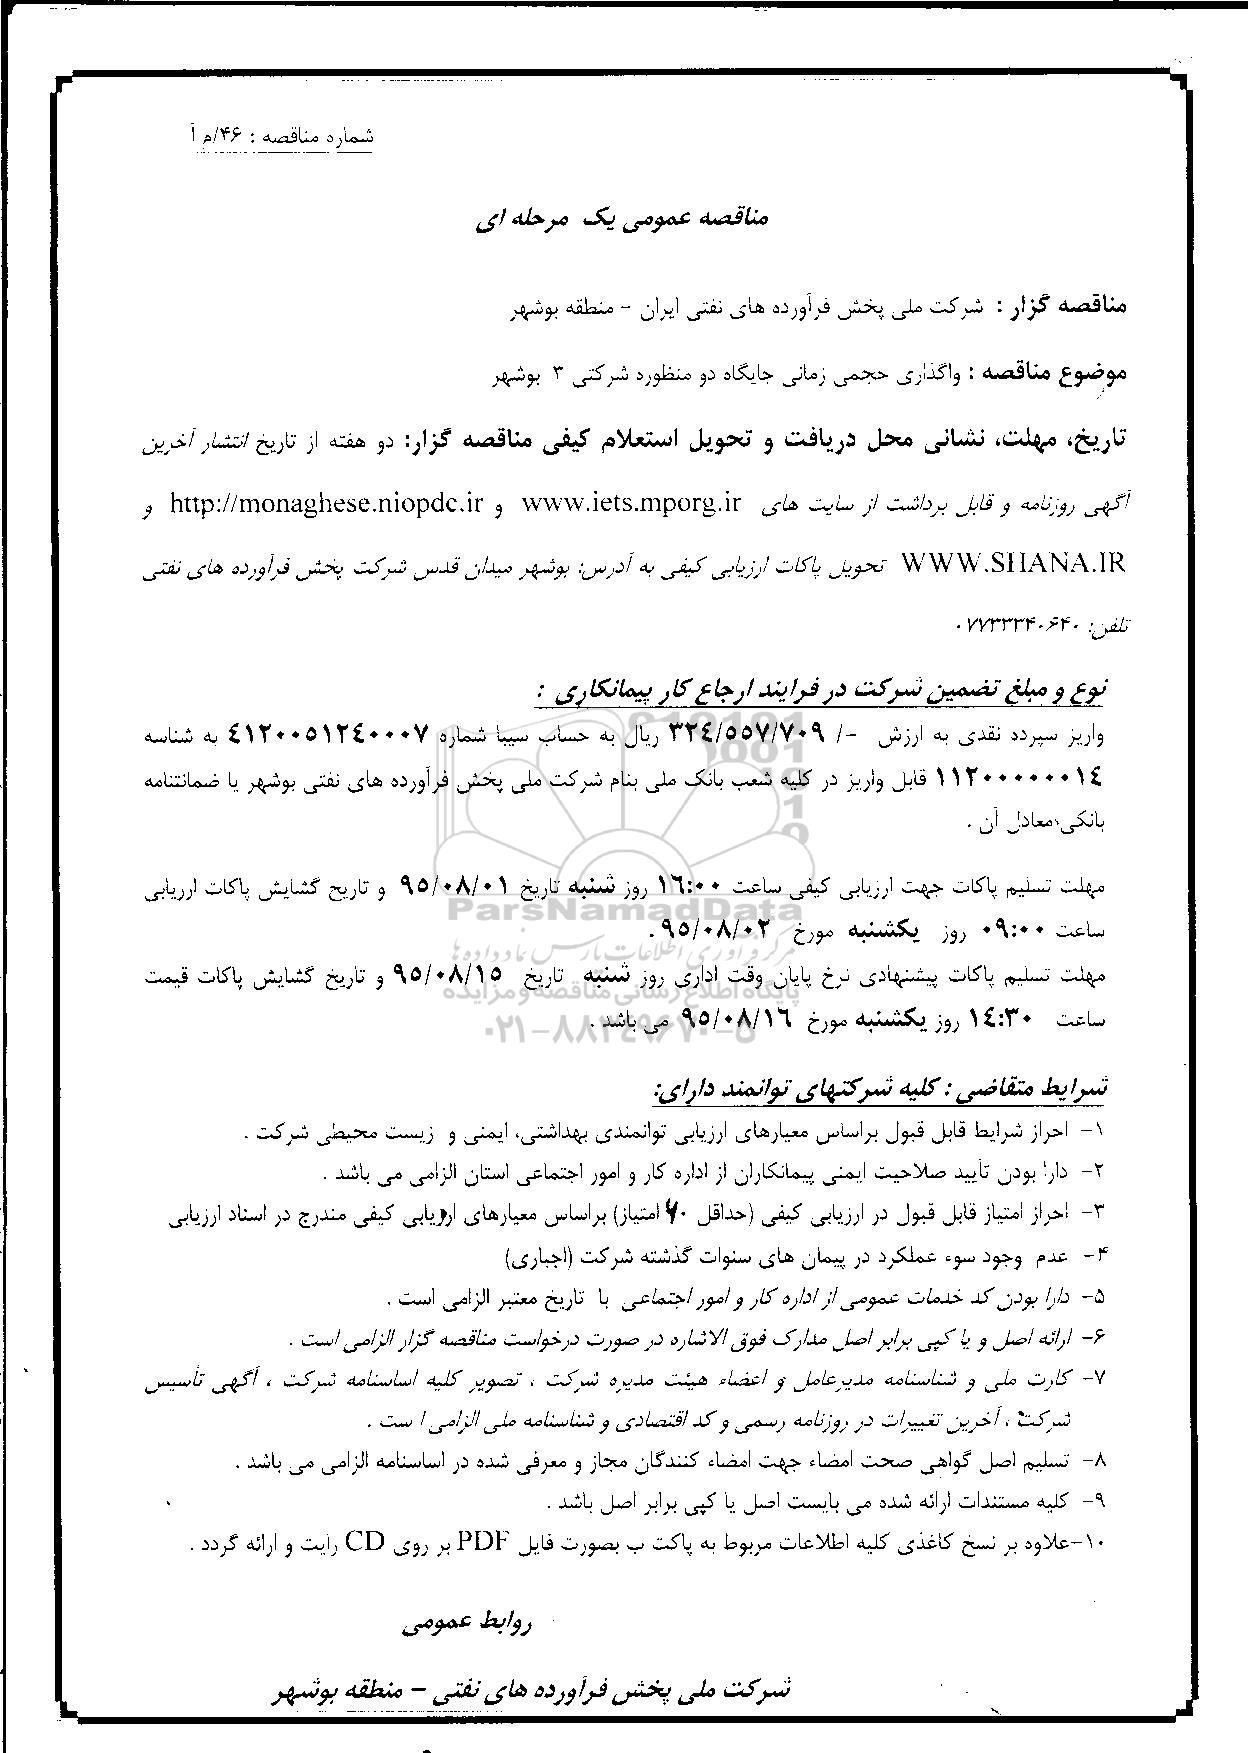 شماره مناقصه : ۴۶/م آ
مناقصه عمومی یک مرحله ای
مناقصه گزار : شرکت ملی پخش فرآورده های نفتی ایران - منطقه بوشهر
موضوع مناقصه : واگذاری حجمی زمانی جایگاه دو منظوره شرکتی ۳ بوشهر
تاریخ، مهلت، نشانی محل دریافت و تحویل استعلام کیفی مناقصه گزار: دو هفته از تاریخ انتشار آخرین
آگهی روزنامه و قابل برداشت از سایت های www.iets.mporg.ir و http://monaghese.niopdc.ir و
WWW.SHANA.IR تحویل پاکات ارزیابی کیفی به آدرس: بوشهر میدان قدس شرکت پخش فرآورده های نفتی
تلفن: ۰۷۷۳۳۳۴۰۶۴۰
نوع و مبلغ تضمین شرکت در فرایند ارجاع کار پیمانکاری :
واریز سپرده نقدی به ارزش -/ ۳۲٤/۵۵۷/۷۰۹ ریال به حساب سیبا شماره ٤۱۲۰۰۵۱۲٤۰۰۰۷ به شناسه
۱۱۲۰۰۰۰۰۰۱٤ قابل واریز در کلیه شعب بانک ملی بنام شرکت ملی پخش فرآورده های نفتی بوشهر یا ضمانتنامه
بانکی معادل آن .
مهلت تسلیم پاکات جهت ارزیابی کیفی ساعت ۱٦:۰۰ روز شنبه تاریخ ۹۵/۰۸/۰۱ و تاریخ گشایش پاکات ارزیابی
ParsNamadData
ساعت ۰۹:۰۰ روز یکشنبه مورخ ۹۵/۰۸/۰۲ .
مرکز فرآوری اطلاعات پارس نماد داده ها
مهلت تسلیم پاکات پیشنهادی نرخ پایان وقت اداری روز شنبه تاریخ ۹۵/۰۸/۱۵ و تاریخ گشایش پاکات قیمت
پایگاه اطلاع رسانی مناقصه و مزایده
ساعت ۱٤:۳۰ روز یکشنبه مورخ ۹۵/۰۸/۱٦ می باشد .
۰۲۱-۸۸۳۴۹۶۷۰-۵
شرایط متقاضی : کلیه شرکتهای توانمند دارای:
۱- احراز شرایط قابل قبول براساس معیارهای ارزیابی توانمندی بهداشتی، ایمنی و زیست محیطی شرکت .
۲- دارا بودن تأیید صلاحیت ایمنی پیمانکاران از اداره کار و امور اجتماعی استان الزامی می باشد .
۳- احراز امتیاز قابل قبول در ارزیابی کیفی (حداقل ۶۰ امتیاز) براساس معیارهای ارزیابی کیفی مندرج در اسناد ارزیابی
۴- عدم وجود سوء عملکرد در پیمان های سنوات گذشته شرکت (اجباری)
۵- دارا بودن کد خدمات عمومی از اداره کار و امور اجتماعی با تاریخ معتبر الزامی است .
۶- ارائه اصل و یا کپی برابر اصل مدارک فوق الاشاره در صورت درخواست مناقصه گزار الزامی است .
۷- کارت ملی و شناسنامه مدیرعامل و اعضاء هیئت مدیره شرکت ، تصویر کلیه اساسنامه شرکت ، آگهی تأسیس
شرکت ، آخرین تغییرات در روزنامه رسمی و کد اقتصادی و شناسنامه ملی الزامی ا ست .
۸- تسلیم اصل گواهی صحت امضاء جهت امضاء کنندگان مجاز و معرفی شده در اساسنامه الزامی می باشد .
۹- کلیه مستندات ارائه شده می بایست اصل یا کپی برابر اصل باشد .
۱۰-علاوه بر نسخ کاغذی کلیه اطلاعات مربوط به پاکت ب بصورت فایل PDF بر روی CD رایت و ارائه گردد .
روابط عمومی
شرکت ملی پخش فرآورده های نفتی - منطقه بوشهر